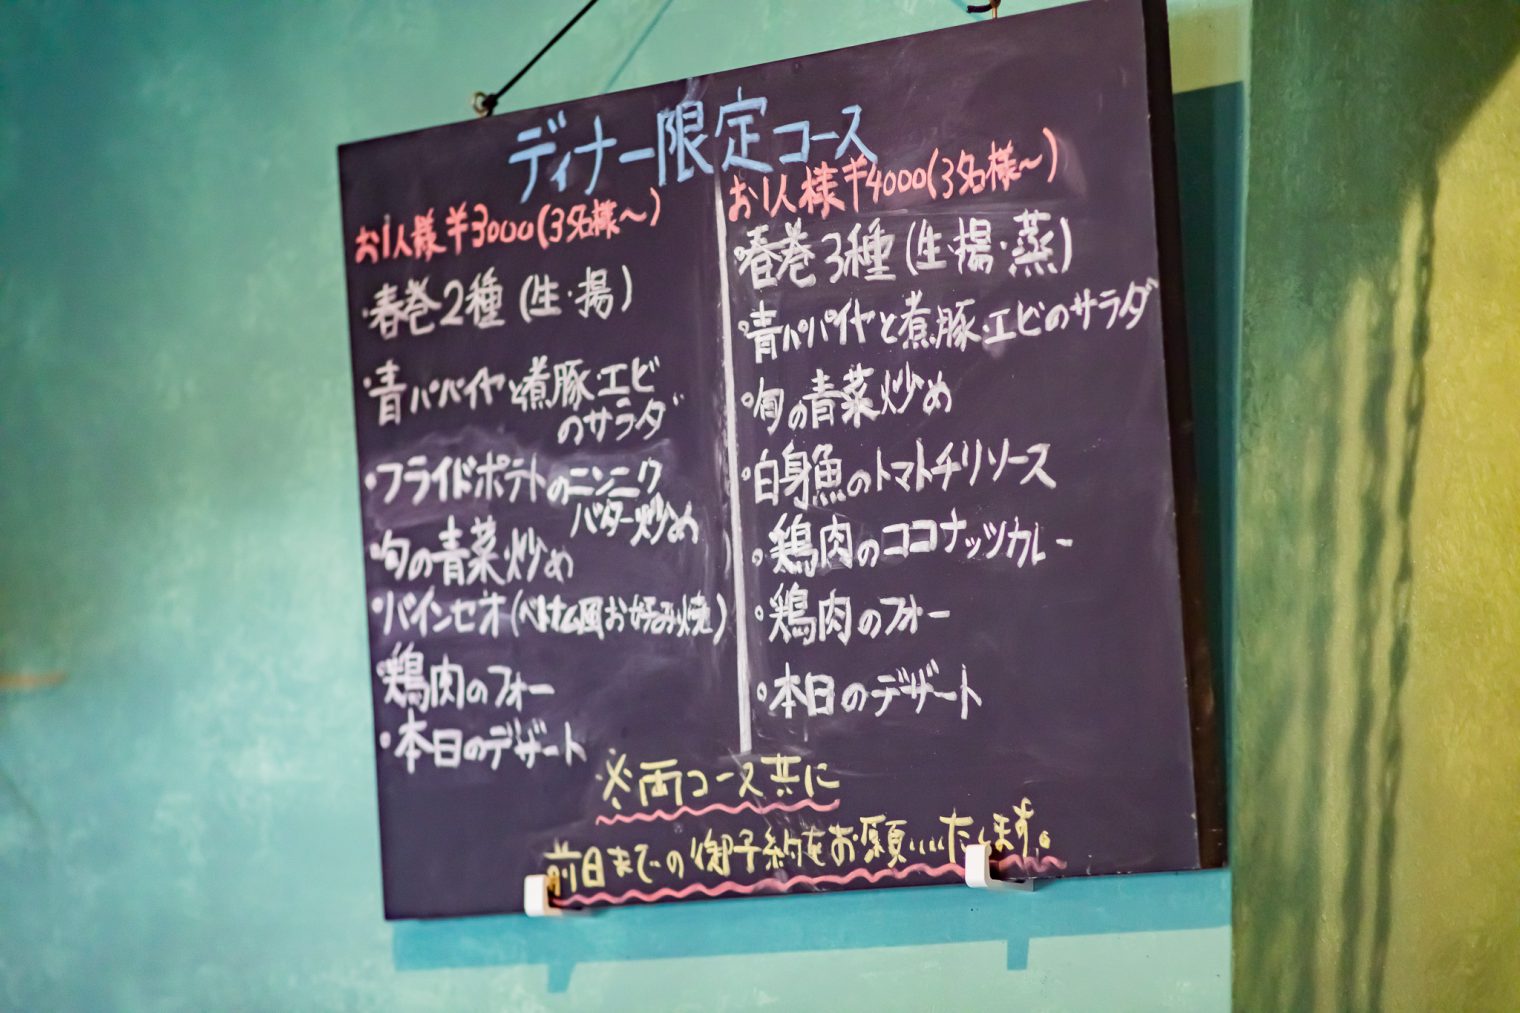 ディナー限定コース
お1人様¥3000(3名様〜)
・春巻2種(生・揚)
・青パパイヤと煮豚・エビ
のサラダ
・フライドポテトのニンニク
バター炒め
・旬の青菜炒め
・バインセオ(ベトナム風お好み焼)
・鶏肉のフォー
・本日のデザート
お1人様¥4000(3名様〜)
・春巻3種(生・揚・蒸)
・青パパイヤと煮豚・エビのサラダ
・旬の青菜炒め
・白身魚のトマトチリソース
・鶏肉のココナッツカレー
・鶏肉のフォー
・本日のデザート
※両コース共に
前日までの御予約をお願いいたします。